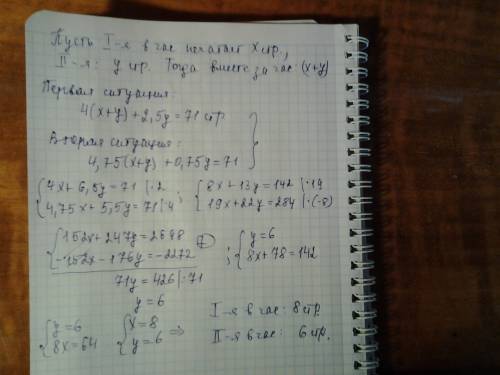 Пусть I-я в час печатает x стр.,
II-я: y стр. Тогда вместе за час: (x+y)
Первая ситуация:
4(x+y)+2,5y=71 стр
Вторая ситуация:
4,75(x+y)+0,75y=71
{4x+6,5y=71 |·2 ; {8x+13y=142 |·19
{4,75x+5,5y=71 |·4 {19x+22y=284 |·(-8)
{152x+247y=2698 (+) ; {y=6
{-152x-176y=-2272 {8x+78=142
71y=426 |:71
y=6
{y=6 {x=8 => I-я в час: 8 стр
{8x=64 {y=6 II-я в час: 6 стр.